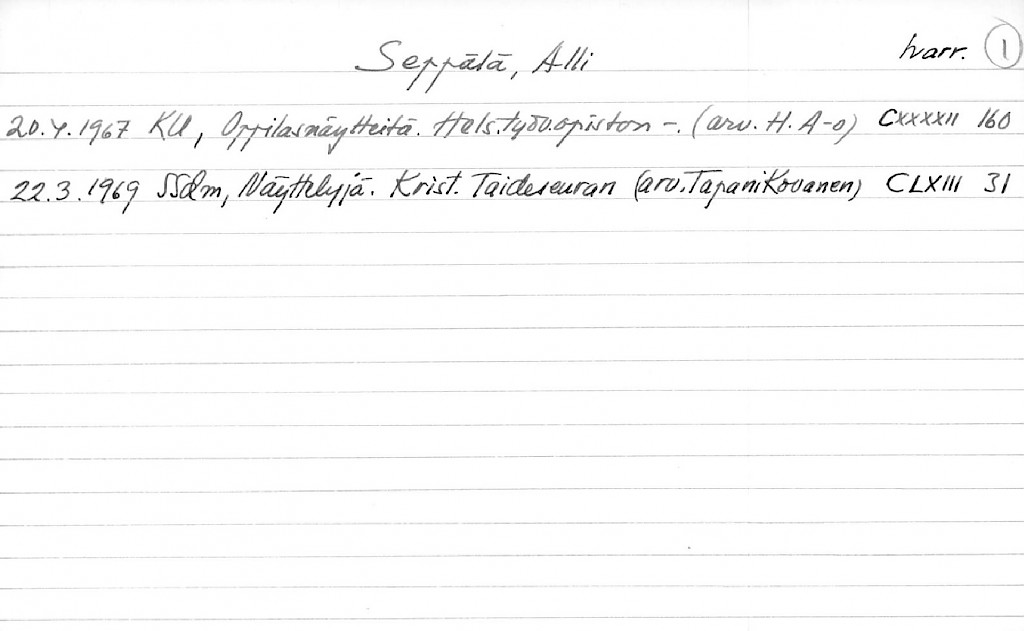 Seppälä, Alli harr. 1
20.4.1967 KU, Oppilasnäytteitä. Hels.työv.opiston -. (arv. H. A-o) CXXXXII 160
22.3.1969 SSdm, Näyttelyjä. Krist. Taideseuran (arv. Tapani Kovanen) CLXIII 31